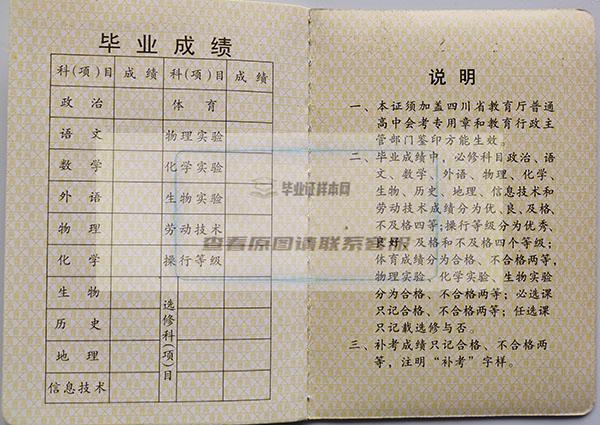 毕业成绩
科(项)目 成绩 科(项)目 成绩
政治 体育
语文 物理实验
数学 化学实验
外语 生物实验
物理 劳动技术
化学 操行等级
生物
历史
地理
信息技术
选修科(项)目
毕业证样本网
查看原图请联系客服
说明
一、本证须加盖四川省教育厅普通
高中会考专用章和教育行政主
管部门签印方能生效。
二、毕业成绩中，必修科目政治、语
文、数学、外语、物理、化学、
生物、历史、地理、信息技术和
劳动技术成绩分为优、良、及格、
不及格四等;操行等级分为优秀、
良好、及格和不及格四个等级;
体育成绩分为合格、不合格两等,
物理实验、化学实验、生物实验
分为合格、不合格两等；必选课
只记合格、不合格两等；任选课
只记载选修与否。
三、补考成绩只记合格、不合格两
等，注明“补考”字样。